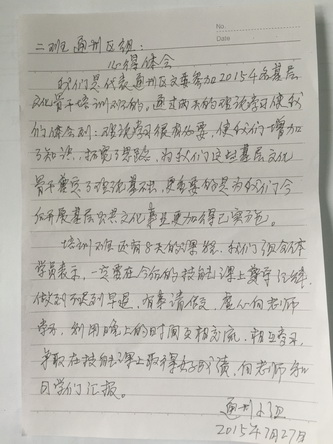 No.
Date
二班通州区组：
心得体会
我们是代表通州区文委参加2015年基层
文化骨干培训班的，通过两天的理论学习使我
们体会到：理论学习很有必要，使我们增加
了知识，拓宽了思路，为我们这些基层文化
骨干奠定了理论基础，更重要的是为我们今
后开展基层公共文化事业更加得已实施。
培训班还有8天的课程，我们组全体
学员表示，一定要在今后的技能课上遵守纪律，
做到不迟到早退，有事请假，虚心向老师
学习，利用晚上的时间互相交流，相互学习，
争取在技能课上取得好成绩，向老师和
同学们汇报。
通州小组
2015年7月27日